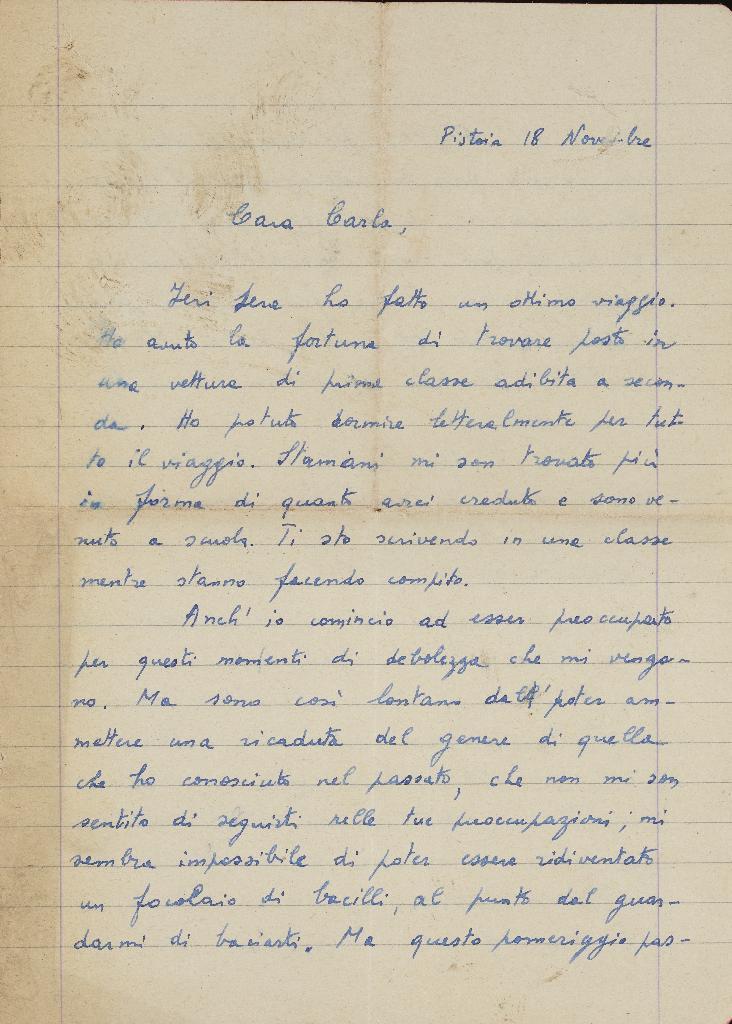 Pistoia 18 Novembre
Cara Carla,
Ieri sera ho fatto un ottimo viaggio.
Ho avuto la fortuna di trovare posto in
una vettura di prima classe adibita a secon-
da. Ho potuto dormire letteralmente per tut-
to il viaggio. Stamani mi son trovato più
in forma di quanto avrei creduto e sono ve-
nuto a scuola. Ti sto scrivendo in una classe
mentre stanno facendo compito.
Anch' io comincio ad esser preoccupato
per questi momenti di debolezza che mi vengo-
no. Ma sono così lontano dal poter am-
mettere una ricaduta del genere di quella
che ho conosciuto nel passato, che non mi son
sentito di seguirti nelle tue preoccupazioni; mi
sembra impossibile di poter essere ridiventato
un focolaio di bacilli, al punto dal guar-
darmi di baciarti. Ma questo pomeriggio pas-